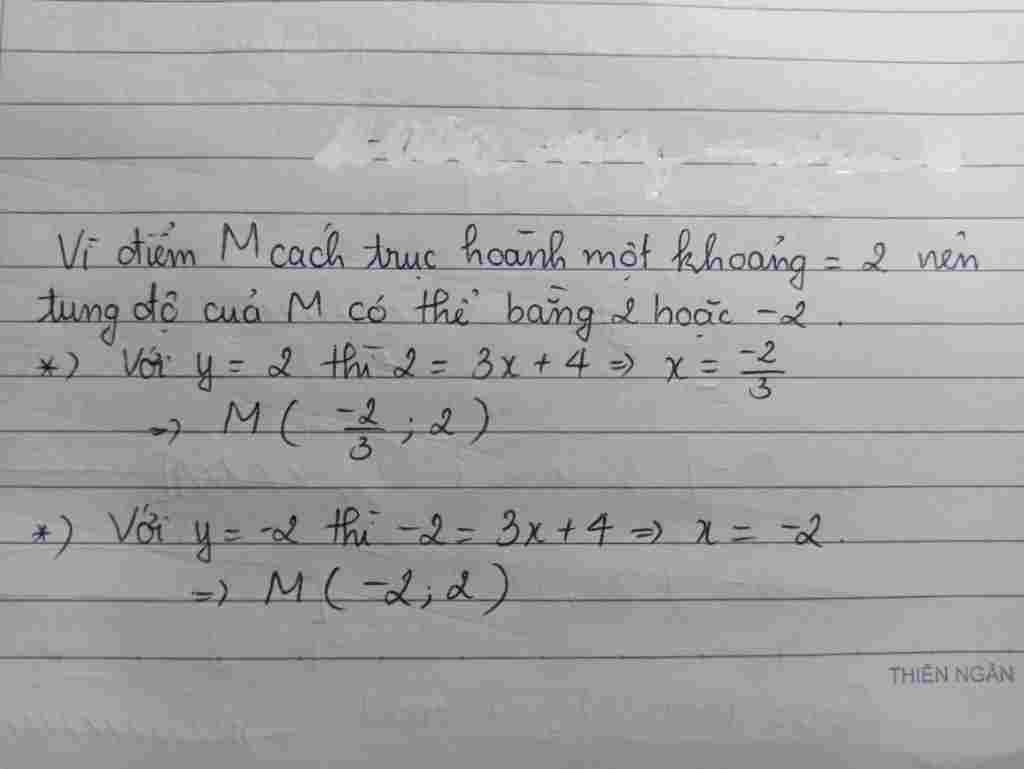 Vì điểm M cách trục hoành một khoảng = 2 nên
tung độ của M có thể bằng 2 hoặc -2.
*) Với y = 2 thì 2 = 3x + 4 => x = -2/3
=> M ( -2/3 ; 2 )
*) Với y = -2 thì -2 = 3x + 4 => x = -2.
=> M ( -2 ; 2 )
THIÊN NGÂN